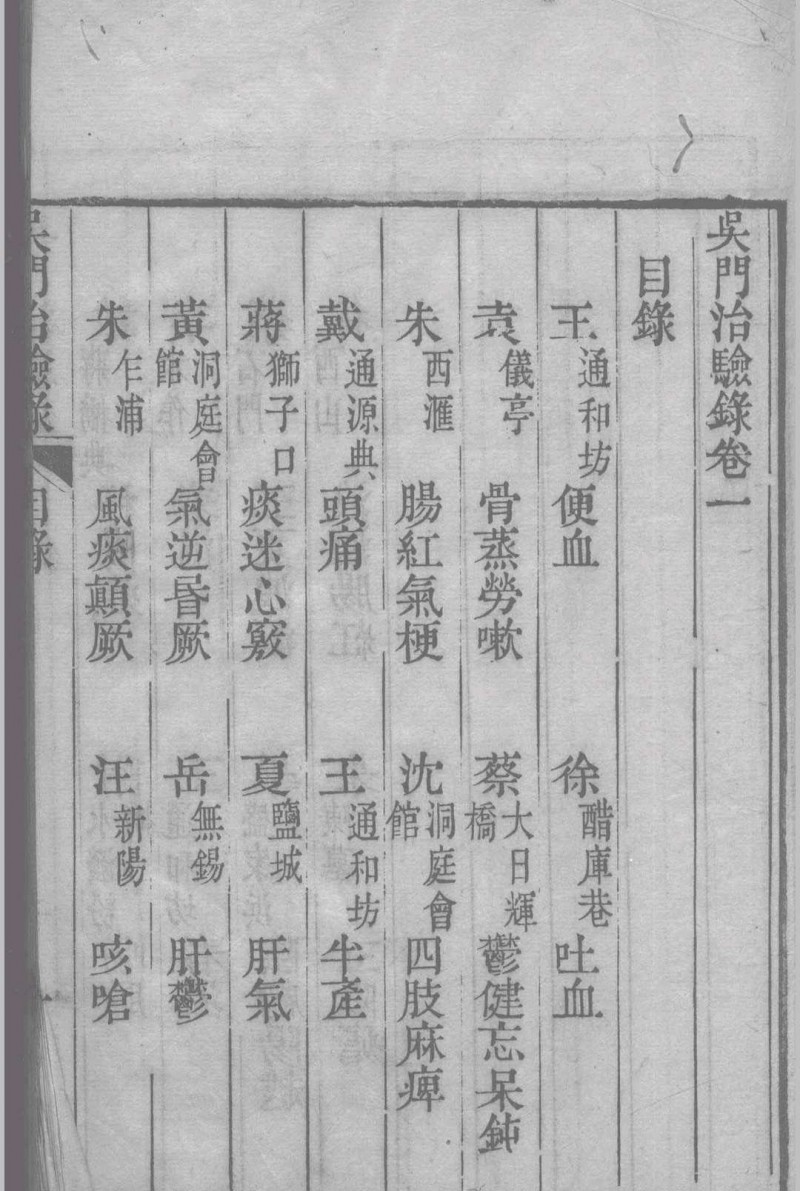 吳門治驗錄卷一
目錄
王通和坊便血 徐醋庫巷吐血
袁儀亭骨蒸勞嗽 蔡大日輝橋鬱健忘呆鈍
朱西滙腸紅氣梗 沈洞庭會館四肢麻痺
戴通源典頭痛 王通和坊半產
蔣獅子口痰迷心竅 夏鹽城肝氣
黃洞庭會館氣逆昏厥 岳無錫肝鬱
朱乍浦風痰顛厥 汪新陽咳嗆
吳門治驗錄 目錄 一